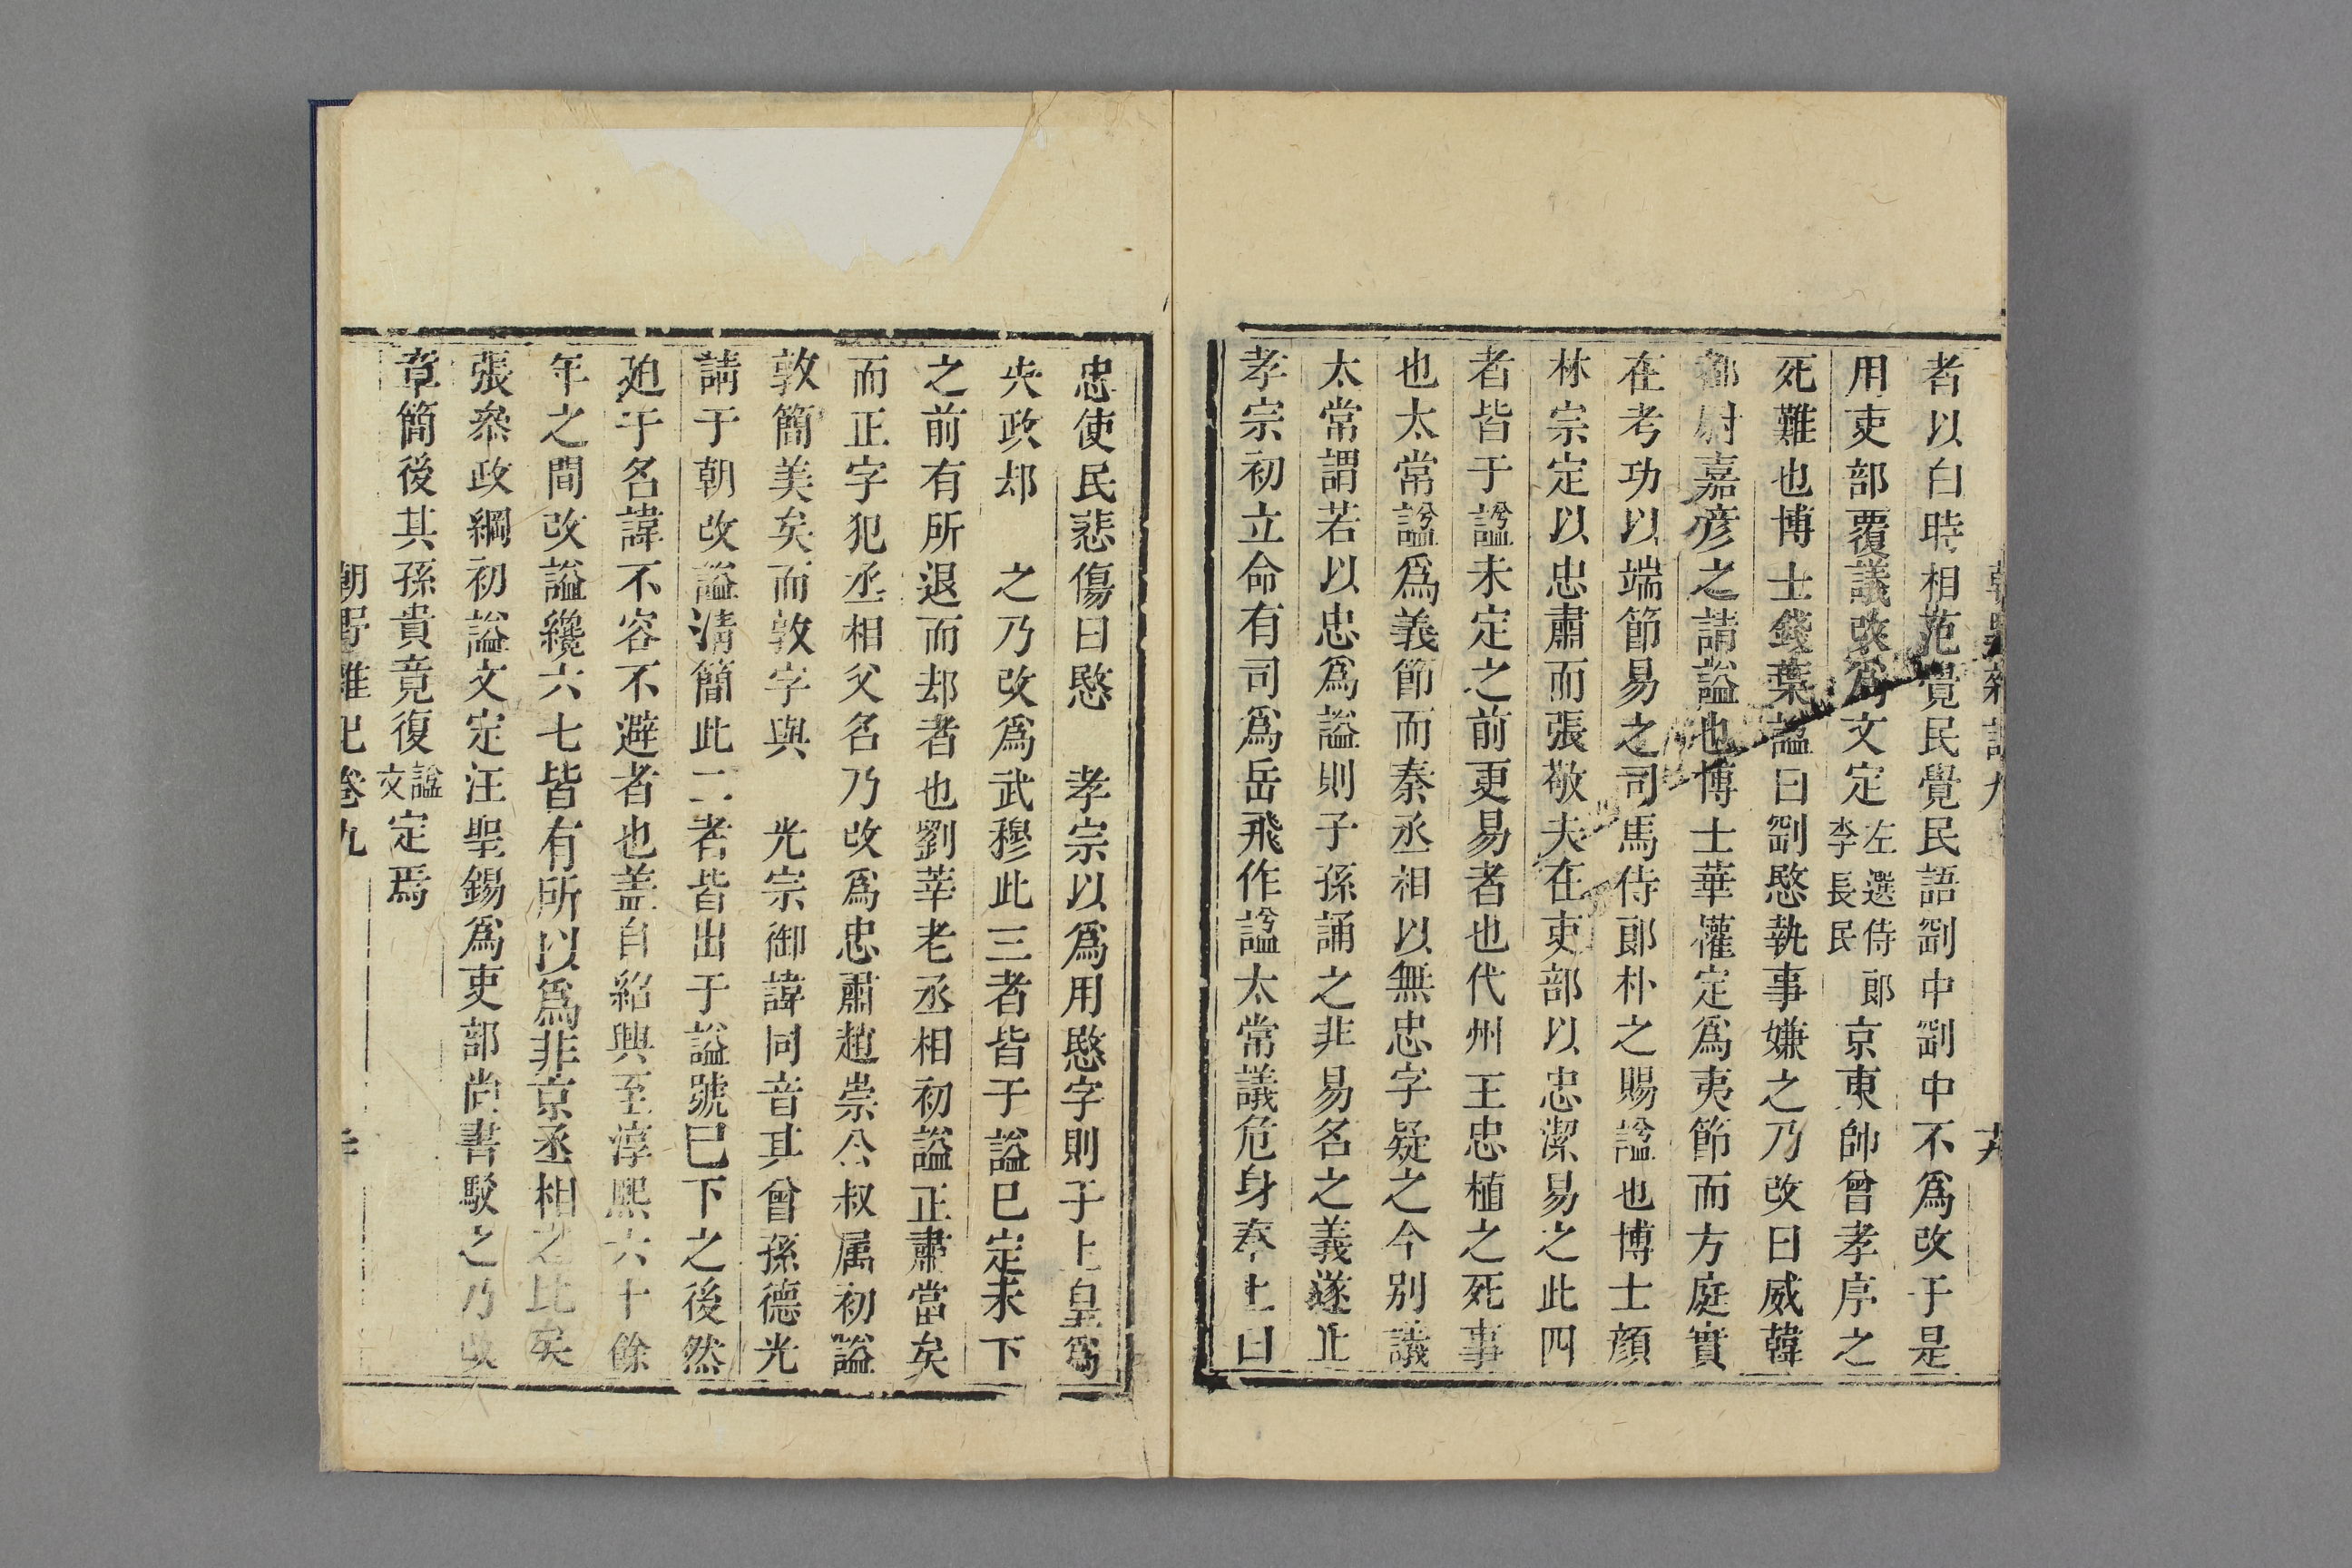 者以白時相范覺民覺民語劄中劄中不爲改于是
用吏部覆議改爲文定左選侍郎李長民京東帥曾孝序之
死難也博士錢葉諡曰剛愍執事嫌之乃改曰威韓
都尉嘉彦之請謚也博士華權定爲夷節而方庭實
在考功以端節易之司馬侍郎朴之賜諡也博士顔
林宗定以忠肅而張敬夫在吏部以忠潔易之此四
者皆于諡未定之前更易者也代州王忠植之死事
也太常諡爲義節而秦丞相以無忠字疑之今別議
太常謂若以忠爲謚則子孫誦之非易名之義遂止
孝宗初立命有司爲岳飛作諡太常議危身奉上曰
忠使民悲傷曰愍 孝宗以爲用愍字則于上皇爲
失政却 之乃改爲武穆此三者皆于謚已定未下
之前有所退而却者也劉莘老丞相初謚正肅當矣
而正字犯丞相父名乃改爲忠肅趙崇公叔属初謚
敦簡美矣而敦字與 光宗御諱同音其曾孫德光
請于朝改謚清簡此二者皆出于謚號已下之後然
廹于名諱不容不避者也盖自紹興至淳熈六十餘
年之間改謚纔六七皆有所以爲非京丞相之比矣
張叅政綱初謚文定汪聖錫爲吏部尚書駁之乃改
章簡後其孫貴竟復諡文定焉
朝野雜記卷九